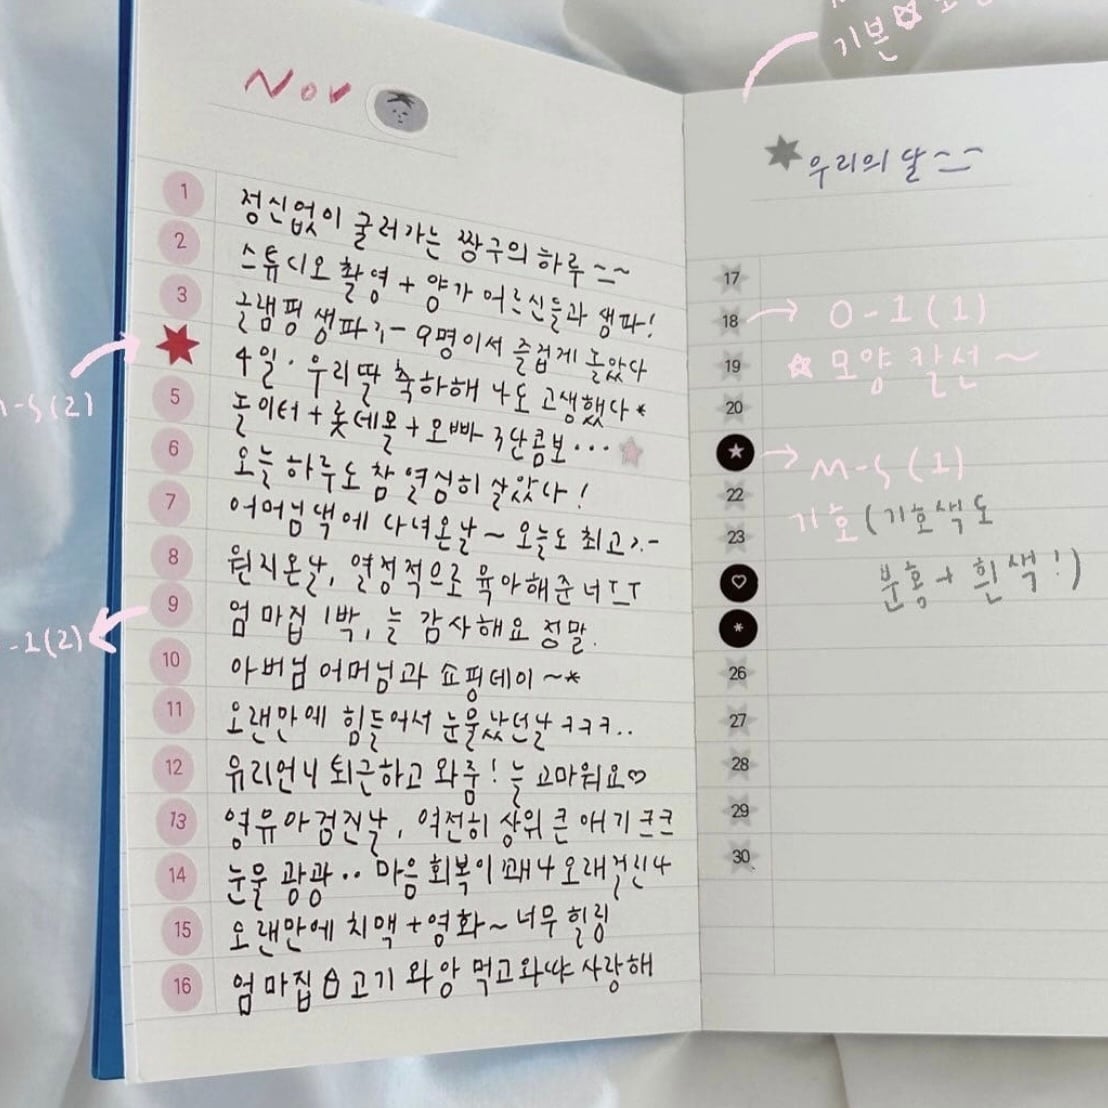 Nov
1 정신없이 굴러가는 짱구의 하루~~
2 스튜디오 촬영 + 양가 어르신들과 생파!
3 글램핑 생파 :- 9명이서 즐겁게 놀았다
4일· 우리딸 축하해 나도 고생했다*
5 놀이터 + 롯데몰 + 오빠 3단콤보···
6 오늘 하루도 참 열심히 살았다!
7 어머님댁에 다녀온날~ 오늘도 최고 :-
8 원지온날, 열정적으로 육아해준 너ㅜㅜ
9 엄마집 1박, 늘 감사해요 정말.
10 아버님 어머님과 쇼핑데이~*
11 오랜만에 힘들어서 눈물났던날 ㅋㅋㅋ..
12 유리언니 퇴근하고 와줌! 늘 고마워요♡
13 영유아검진날, 역전히 상위 큰 애기 크크
14 눈물 광광·· 마음 회복이 꽤나 오래걸린다
15 오랜만에 치맥 + 영화~ 너무 힐링
16 엄마집 고기 와앙 먹고와땨 사랑해
-S(2)
-1(2)
기본
우리의 달~~
17
18 → O-1(1)
19 모양 칼선~
20
★ → M-S(1)
22
23 기호(기호색도
분홍 + 흰색!)
♡
*
26
27
28
29
30